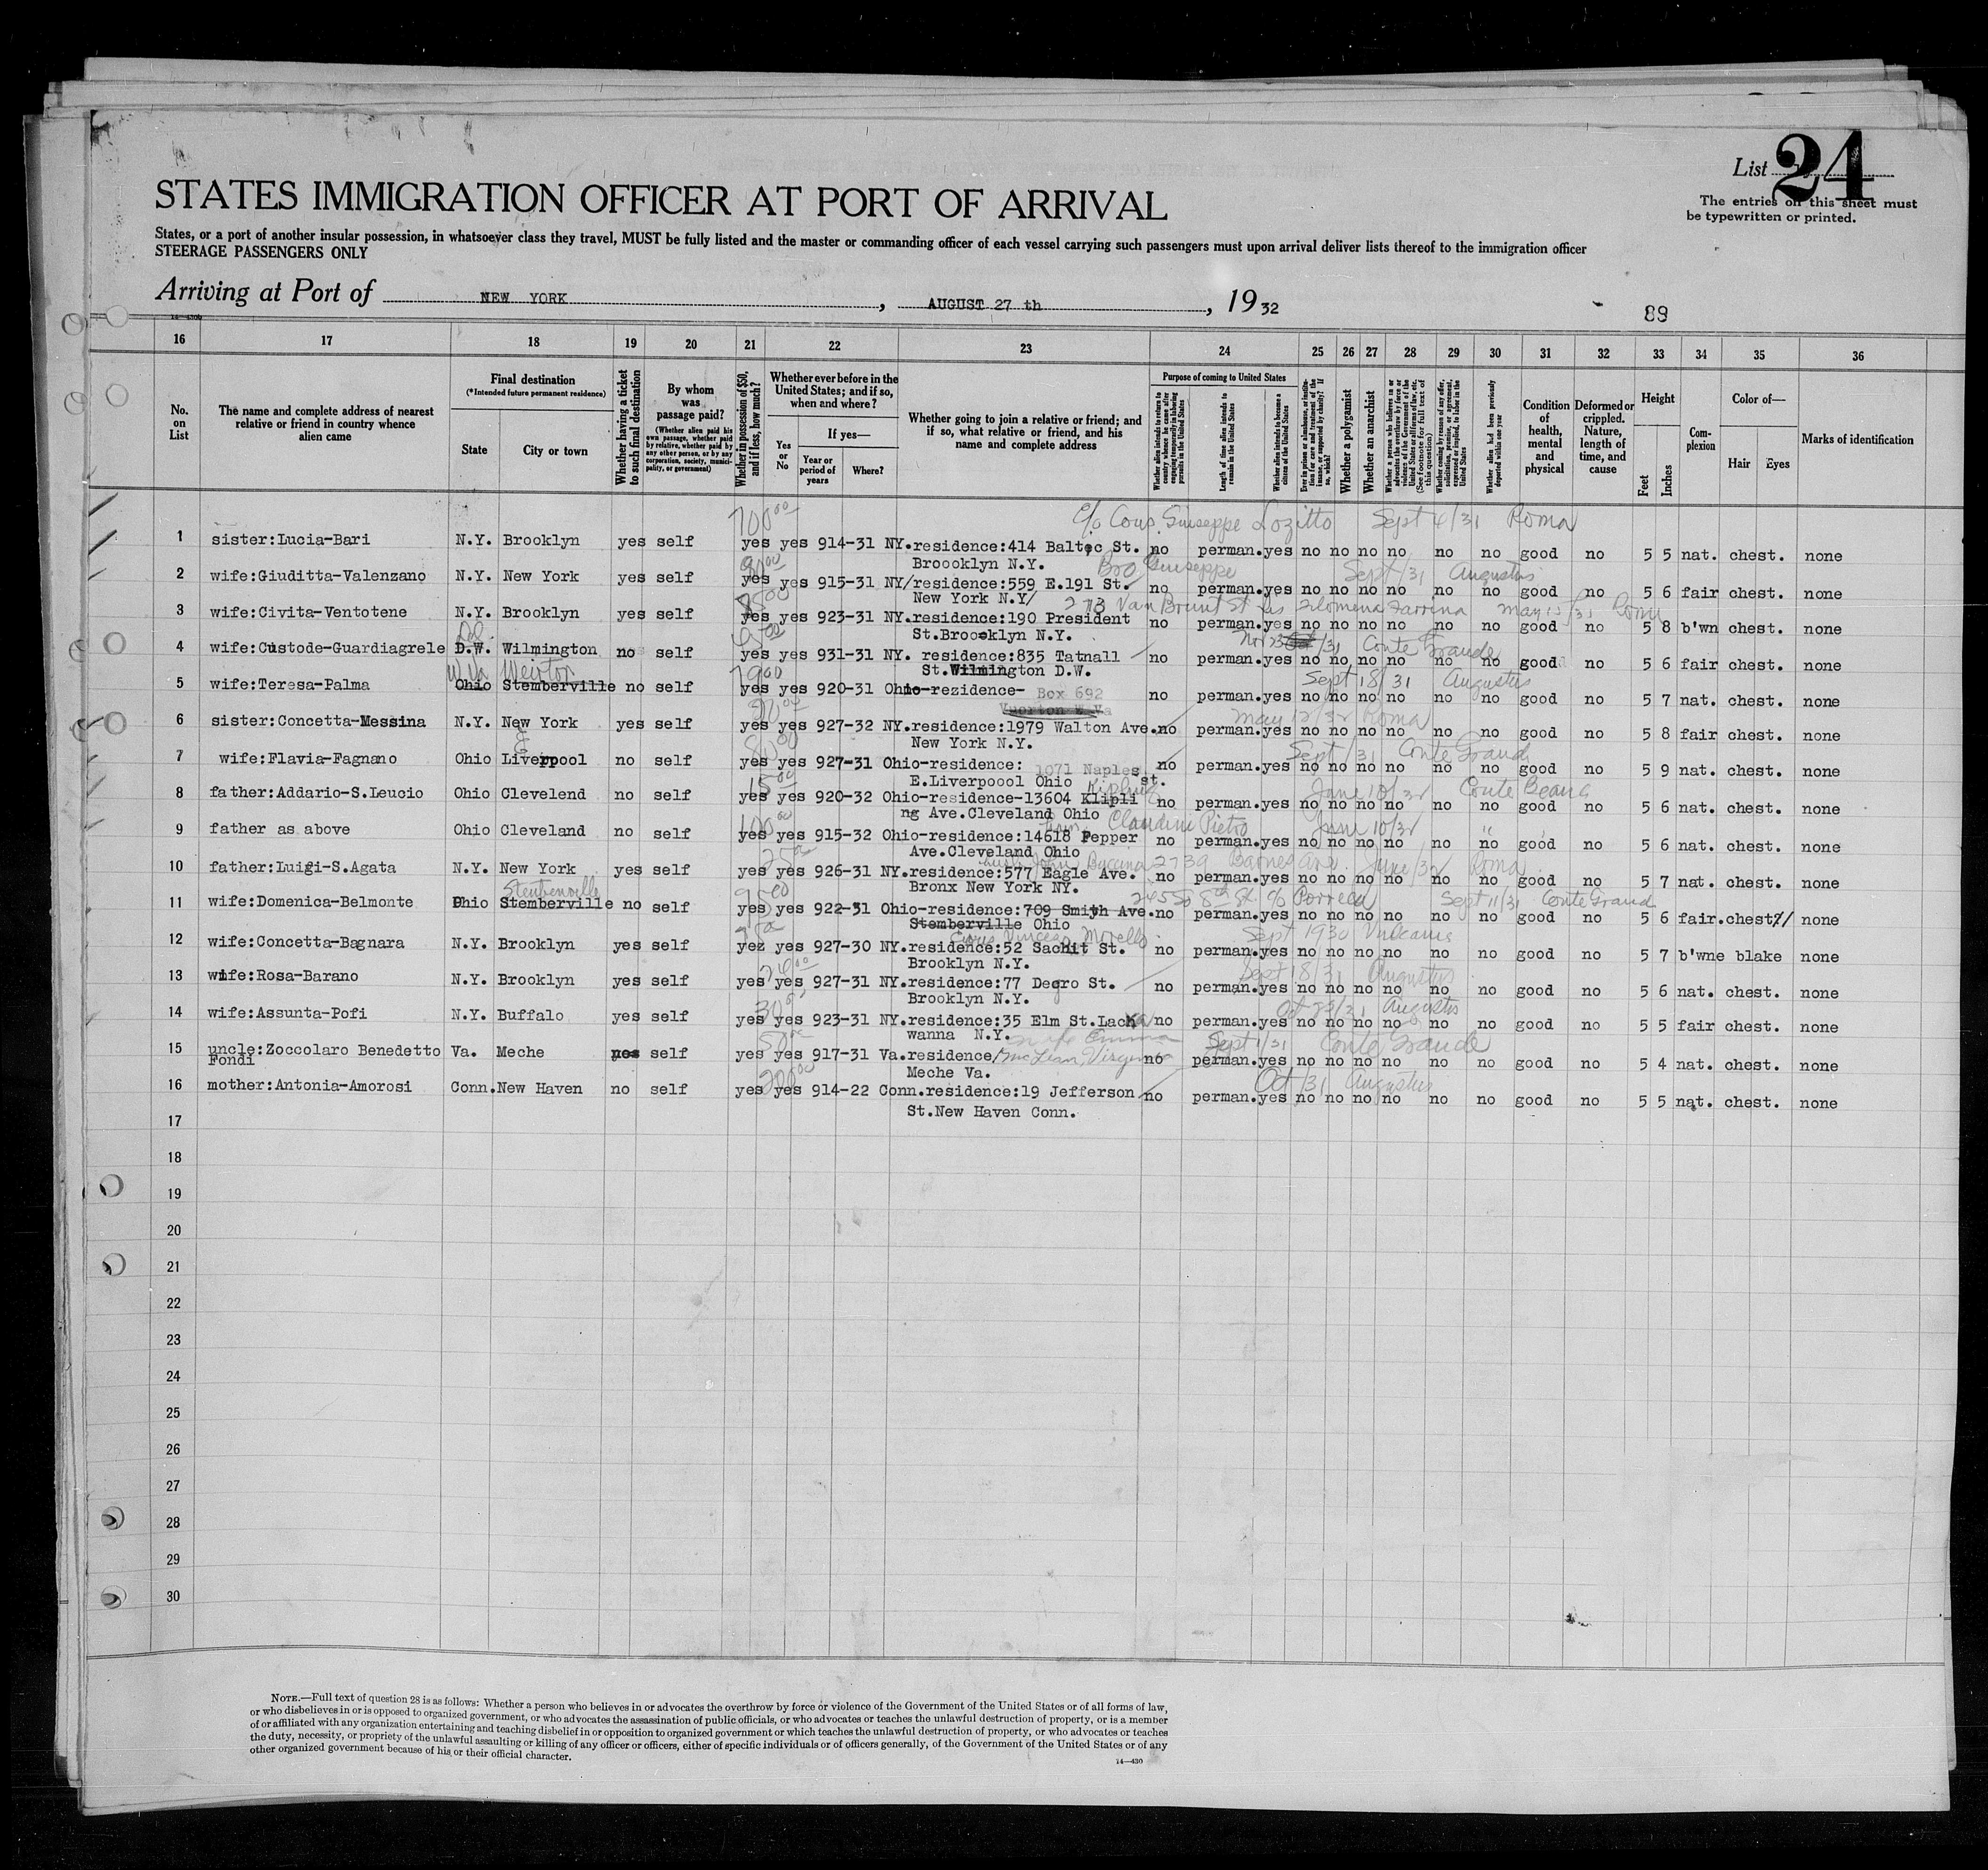 List 24
The entries on this sheet must
be typewritten or printed.
STATES IMMIGRATION OFFICER AT PORT OF ARRIVAL
States, or a port of another insular possession, in whatsoever class they travel, MUST be fully listed and the master or commanding officer of each vessel carrying such passengers must upon arrival deliver lists thereof to the immigration officer
STEERAGE PASSENGERS ONLY
Arriving at Port of NEW YORK, AUGUST 27 th, 1932
89
16 17 18 19 20 21 22 23 24 25 26 27 28 29 30 31 32 33 34 35 36
No. on List
The name and complete address of nearest relative or friend in country whence alien came
Final destination
(*Intended future permanent residence)
State
City or town
Whether having a ticket to such final destination
By whom was passage paid?
(Whether alien paid his own passage, whether paid by relative, whether paid by any other person, or by any corporation, society, municipality, or government)
Whether in possession of $50, and if less, how much?
Whether ever before in the United States; and if so, when and where?
Yes or No
If yes—
Year or period of years
Where?
Whether going to join a relative or friend; and if so, what relative or friend, and his name and complete address
Purpose of coming to United States
Whether alien intends to return to country whence he came after engaging temporarily in laboring pursuits in the United States
Length of time alien intends to remain in the United States
Whether alien intends to become a citizen of the United States
Ever in prison or almshouse, or institution for care and treatment of the insane, or supported by charity? If so, which?
Whether a polygamist
Whether an anarchist
Whether a person who believes in or advocates the overthrow by force or violence of the Government of the United States or all forms of law, etc. (See footnote for full text of this question)
Whether coming by reason of any offer, solicitation, promise, or agreement, expressed or implied, to labor in the United States
Whether alien had been previously deported within one year
Condition of health, mental and physical
Deformed or crippled. Nature, length of time, and cause
Height
Feet
Inches
Complexion
Color of—
Hair Eyes
Marks of identification
700 00 c/o Cous. Giuseppe Lozitto Sept 4/31 Roma
1 sister:Lucia-Bari N.Y. Brooklyn yes self yes yes 914-31 NY.residence:414 Baltic St. no perman.yes no no no no no no good no 5 5 nat. chest. none
Broooklyn N.Y. Bro Giuseppe Sept/31 Augustus
2 wife:Giuditta-Valenzano N.Y. New York yes self yes yes 915-31 NY/residence:559 E.191 St. no perman.yes no no no no no no good no 5 6 fair chest. none
New York N.Y/ 273 Van Brunt St Filomena Farrina Roma
3 wife:Civita-Ventotene N.Y. Brooklyn yes self yes yes 923-31 NY.residence:190 President no perman.yes no no no no no no good no 5 8 b'wn chest. none
St.Broooklyn N.Y. Nov 23/31 Conte Grande
Del.
4 wife:Custode-Guardiagrele D.W. Wilmington no self yes yes 931-31 NY. residence:835 Tatnall no perman.yes no no no no no no good no 5 6 fair chest. none
W Va Weirton St.Wilmington D.W. Sept 18/31 Augustus
5 wife:Teresa-Palma Ohio Stemberville no self yes yes 920-31 Ohio-rezidence- Box 692 no perman.yes no no no no no no good no 5 7 nat. chest. none
6 sister:Concetta-Messina N.Y. New York yes self yes yes 927-32 NY.residence:1979 Walton Ave. no perman.yes no no no no no no good no 5 8 fair chest. none
May 12/32 Roma
New York N.Y. Sept/31 Conte Grand
E
7 wife:Flavia-Fagnano Ohio Liverpool no self yes yes 927-31 Ohio-residence: 1071 Naples st. no perman.yes no no no no no no good no 5 9 nat. chest. none
E.Liverpoool Ohio Kipling June 10/32
8 father:Addario-S.Leucio Ohio Clevelend no self yes yes 920-32 Ohio-residence-13604 Klipli no perman.yes no no no no no no good no 5 6 nat. chest. none
ng Ave.Cleveland Ohio
100 00 Claudini Pietro June 10/32 "
9 father as above Ohio Cleveland no self yes yes 915-32 Ohio-residence:14618 Pepper no perman.yes no no no no no no good no 5 6 nat. chest. none
Ave.Cleveland Ohio
2739 Barnes Ave. June/32 Roma
10 father:Luigi-S.Agata N.Y. New York yes self yes yes 926-31 NY.residence:577 Eagle Ave. no perman.yes no no no no no no good no 5 7 nat. chest. none
Bronx New York NY.
Steubenville 245 So 8th St. c/o Porreca Sept 11/31 Conte Grand
11 wife:Domenica-Belmonte Ohio Stemberville no self yes yes 922-31 Ohio-residence:709 Smith Ave. no perman.yes no no no no no no good no 5 6 fair.chest// none
Stemberville Ohio
Morello Sept 1930 Vulcania
12 wife:Concetta-Bagnara N.Y. Brooklyn yes self yez yes 927-30 NY.residence:52 Sachit St. no perman.yes no no no no no no good no 5 7 b'wne blake none
Brooklyn N.Y. Sept 18/31 Augustus
13 wife:Rosa-Barano N.Y. Brooklyn yes self yes yes 927-31 NY.residence:77 Degro St. no perman.yes no no no no no no good no 5 6 nat. chest. none
Brooklyn N.Y. Augustus
14 wife:Assunta-Pofi N.Y. Buffalo yes self yes yes 923-31 NY.residence:35 Elm St.Lacka no perman.yes no no no no no no good no 5 5 fair chest. none
wanna N.Y. Emma Sept 1/31 Conte Grande
15 uncle:Zoccolaro Benedetto Va. Meche self yes yes 917-31 Va.residence/ McLean, Virginia no perman.yes no no no no no no good no 5 4 nat. chest. none
Fondi Meche Va.
200 00 Oct/31 Augustus
16 mother:Antonia-Amorosi Conn. New Haven no self yes yes 914-22 Conn.residence:19 Jefferson no perman.yes no no no no no no good no 5 5 nat. chest. none
St.New Haven Conn.
17
18
19
20
21
22
23
24
25
26
27
28
29
30
NOTE.—Full text of question 28 is as follows: Whether a person who believes in or advocates the overthrow by force or violence of the Government of the United States or of all forms of law,
or who disbelieves in or is opposed to organized government, or who advocates the assassination of public officials, or who advocates or teaches the unlawful destruction of property, or is a member
of or affiliated with any organization entertaining and teaching disbelief in or opposition to organized government or which teaches the unlawful destruction of property, or who advocates or teaches
the duty, necessity, or propriety of the unlawful assaulting or killing of any officer or officers, either of specific individuals or of officers generally, of the Government of the United States or of any
other organized government because of his or their official character.
14—430